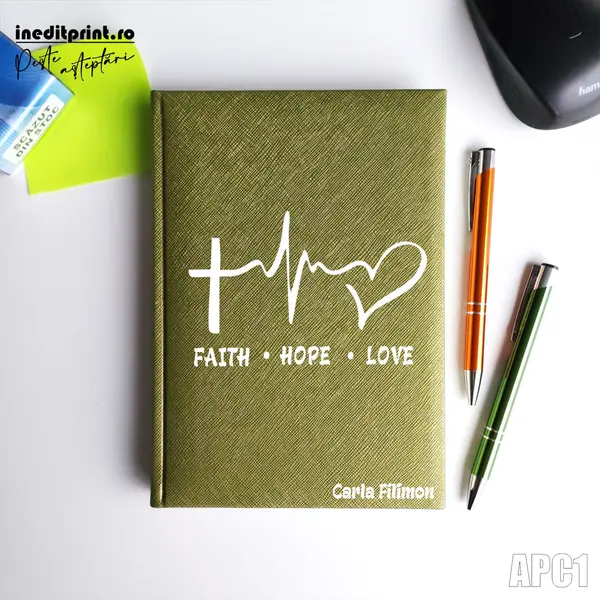 ineditprint.ro
Peste așteptări
SCAZUT
DIN STOC
ham
FAITH • HOPE • LOVE
Carla Filimon
APC1